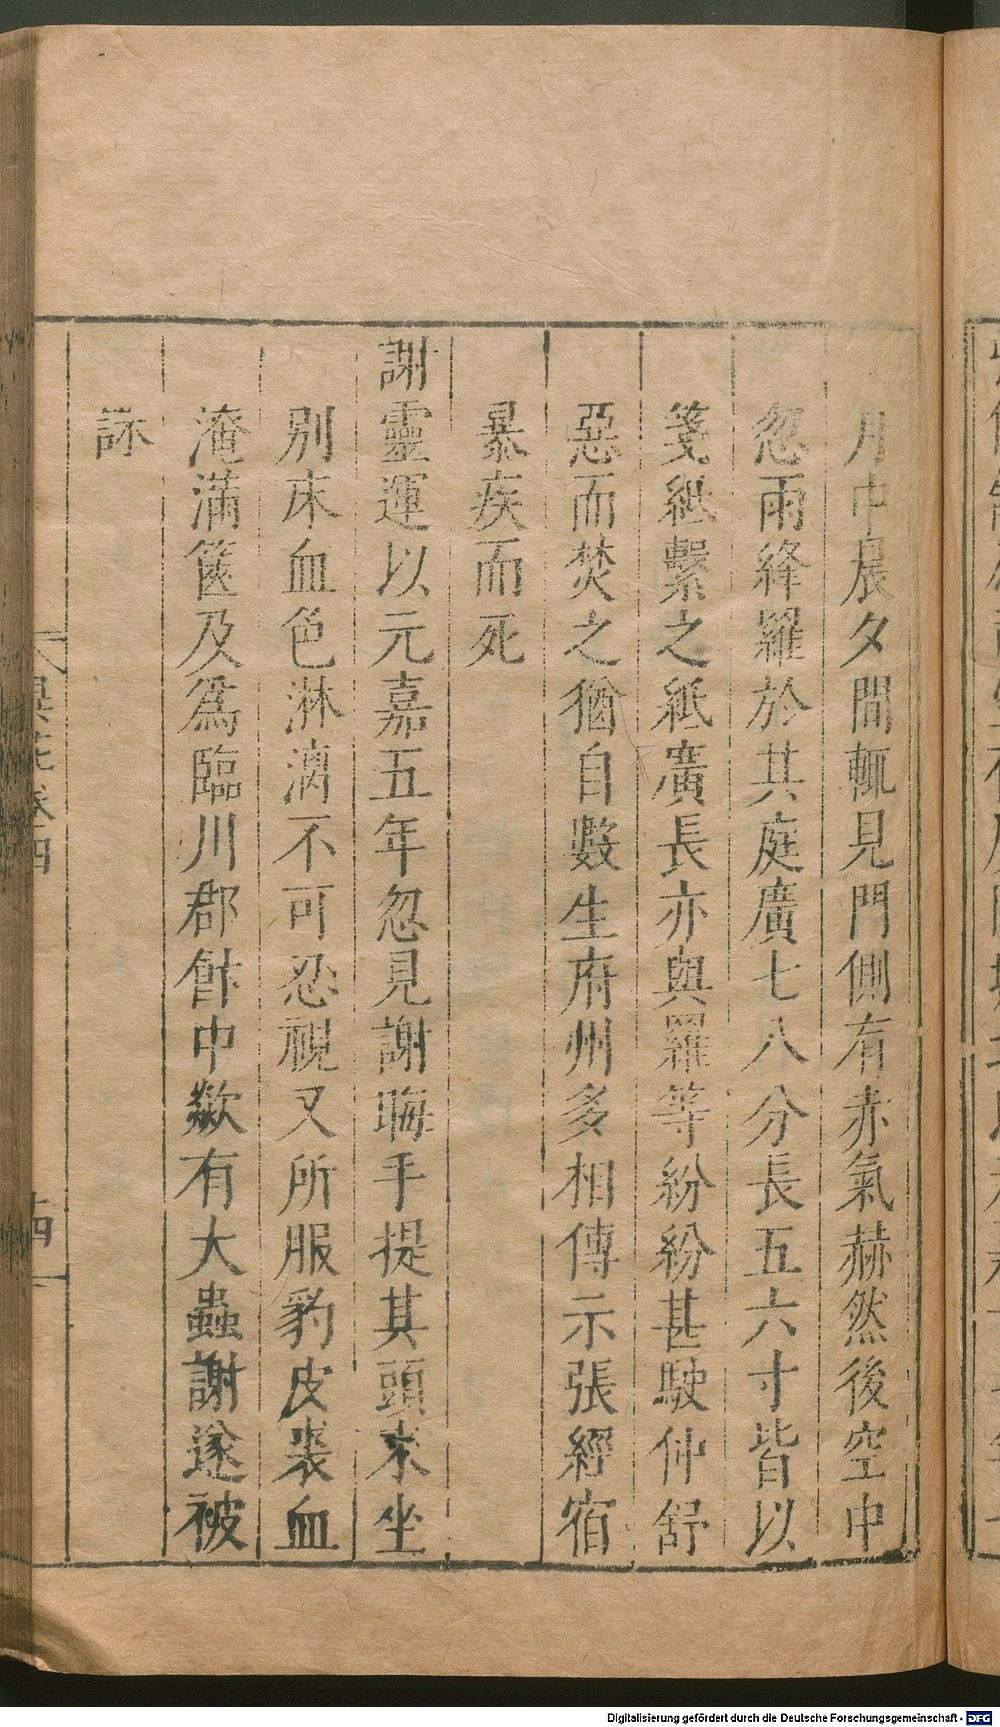 月中晨夕間輒見門側有赤氣赫然後空中
忽雨絳羅於其庭廣七八分長五六寸皆以
箋紙繫之紙廣長亦與羅等紛紛甚駛仲舒
惡而焚之猶自數生府州多相傳示張經宿
暴疾而死
謝靈運以元嘉五年忽見謝晦手提其頭來坐
別床血色淋漓不可忍視又所服豹皮裘血
淹滿篋及爲臨川郡飰中歘有大蟲謝遂被
誅
異苑卷四
十四
Digitalisierung gefördert durch die Deutsche Forschungsgemeinschaft - DFG